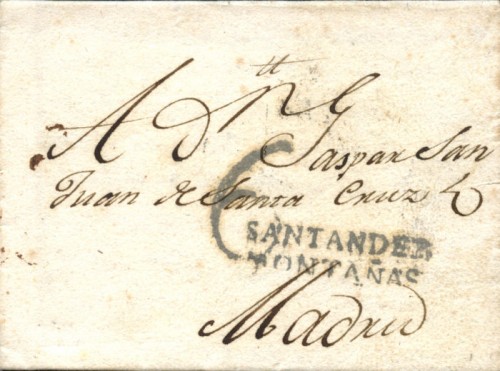 A dn Gaspar San
Juan de Santa Cruz
6
SANTANDER
MONTAÑAS
Madrid